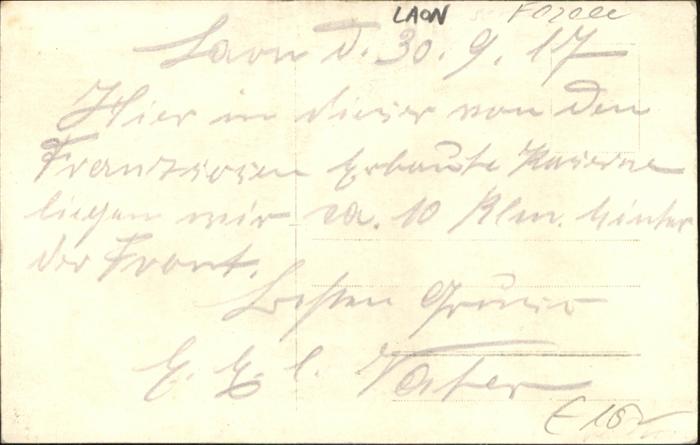 LAON
Laon d. 30.9.17
Hier in dieser von den
Franzosen Erbaute Kaserne
liegen wir ca. 10 Klm. hinter
der Front.
Besten Grüsse
Vater
€ 16